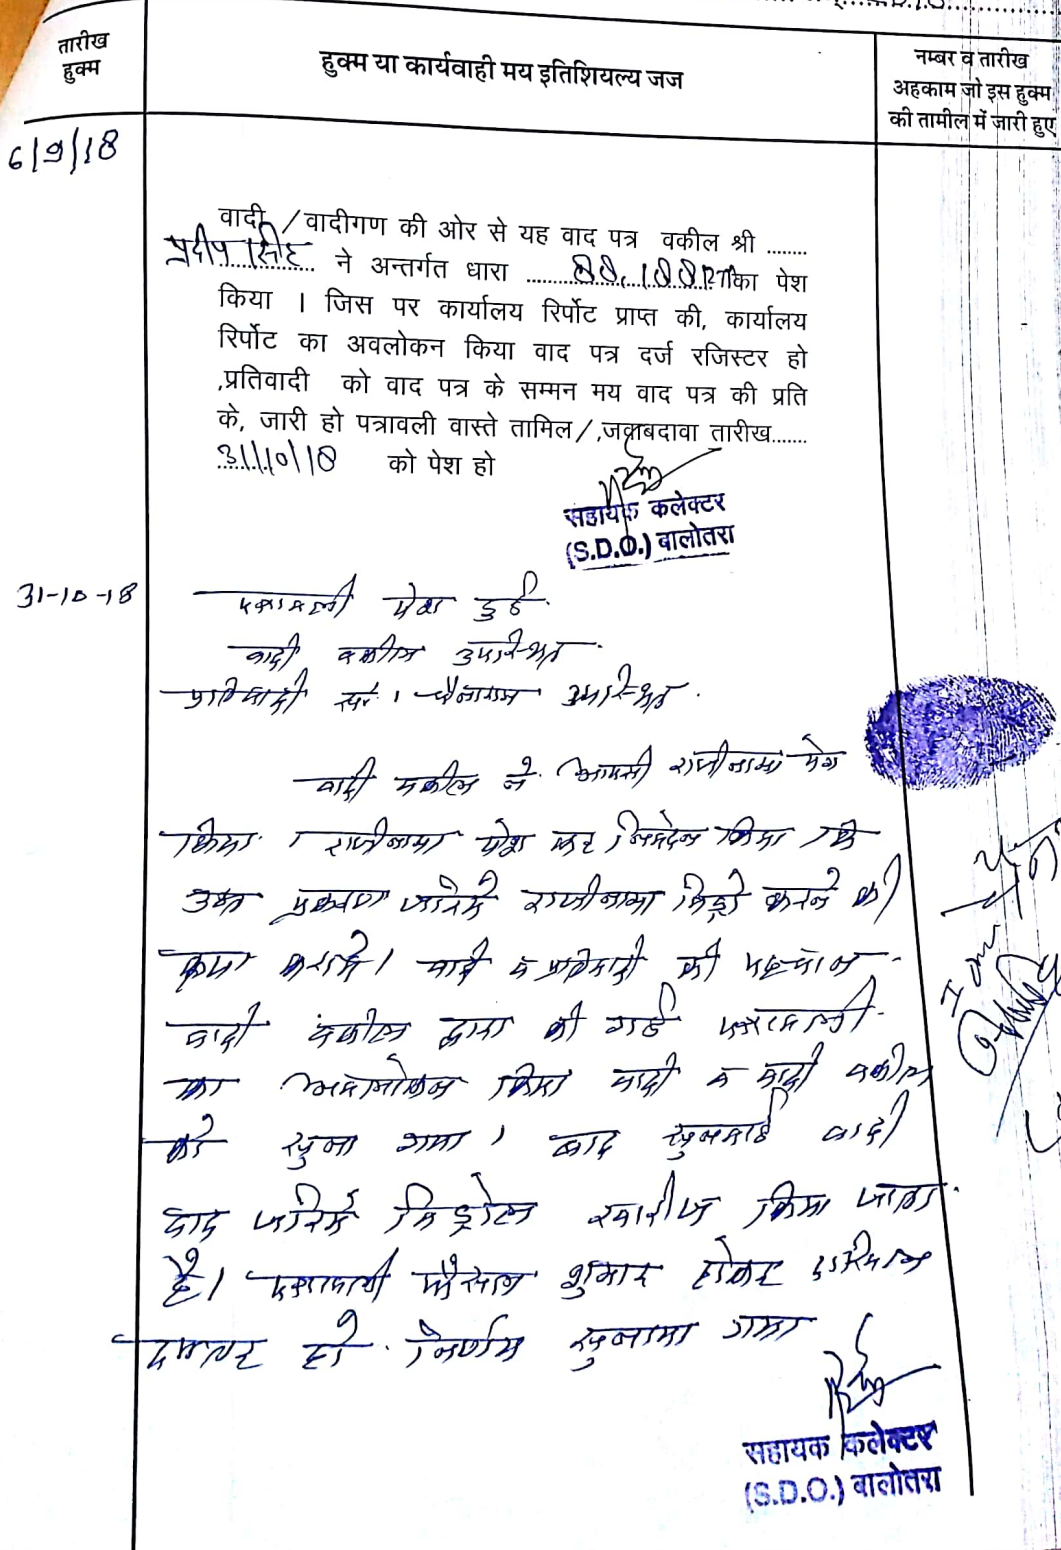 तारीख
हुक्म
हुक्म या कार्यवाही मय इतिशियल्य जज
नम्बर व तारीख
अहकाम जो इस हुक्म
की तामील में जारी हुए
6/9/18
वादी /वादीगण की ओर से यह वाद पत्र वकील श्री ........
प्रदीप सिंह ने अन्तर्गत धारा ........88, 188 का पेश
किया । जिस पर कार्यालय रिर्पोट प्राप्त की, कार्यालय
रिर्पोट का अवलोकन किया वाद पत्र दर्ज रजिस्टर हो
,प्रतिवादी को वाद पत्र के सम्मन मय वाद पत्र की प्रति
के, जारी हो पत्रावली वास्ते तामिल/,जवाबदावा तारीख.......
31/10/18 को पेश हो
सहायक कलेक्टर
(S.D.O.) बालोतरा
31-10-18
पत्रावली पेश हुई.
वादी वकील उपस्थित.
प्रतिवादी सं. 1 उपस्थित.
वादी वकील ने आपसी राजीनामा पेश
किया । राजीनामा पेश कर निवेदन किया कि
उक्त प्रकरण जरिये राजीनामा विड्रो करने की
कृपा करावे। वादी व प्रतिवादी की पहचान
वादी वकील द्वारा की गई पत्रावली
का अवलोकन किया वादी व वादी वकील
को सुना गया । बाद सुनवाई वादी
वाद जरिये विड्रोल खारीज किया जाता
है। पत्रावली फैसल शुमार होकर दाखिल
दफ्तर हो. निर्णय सुनाया गया
सहायक कलेक्टर
(S.D.O.) बालोतरा